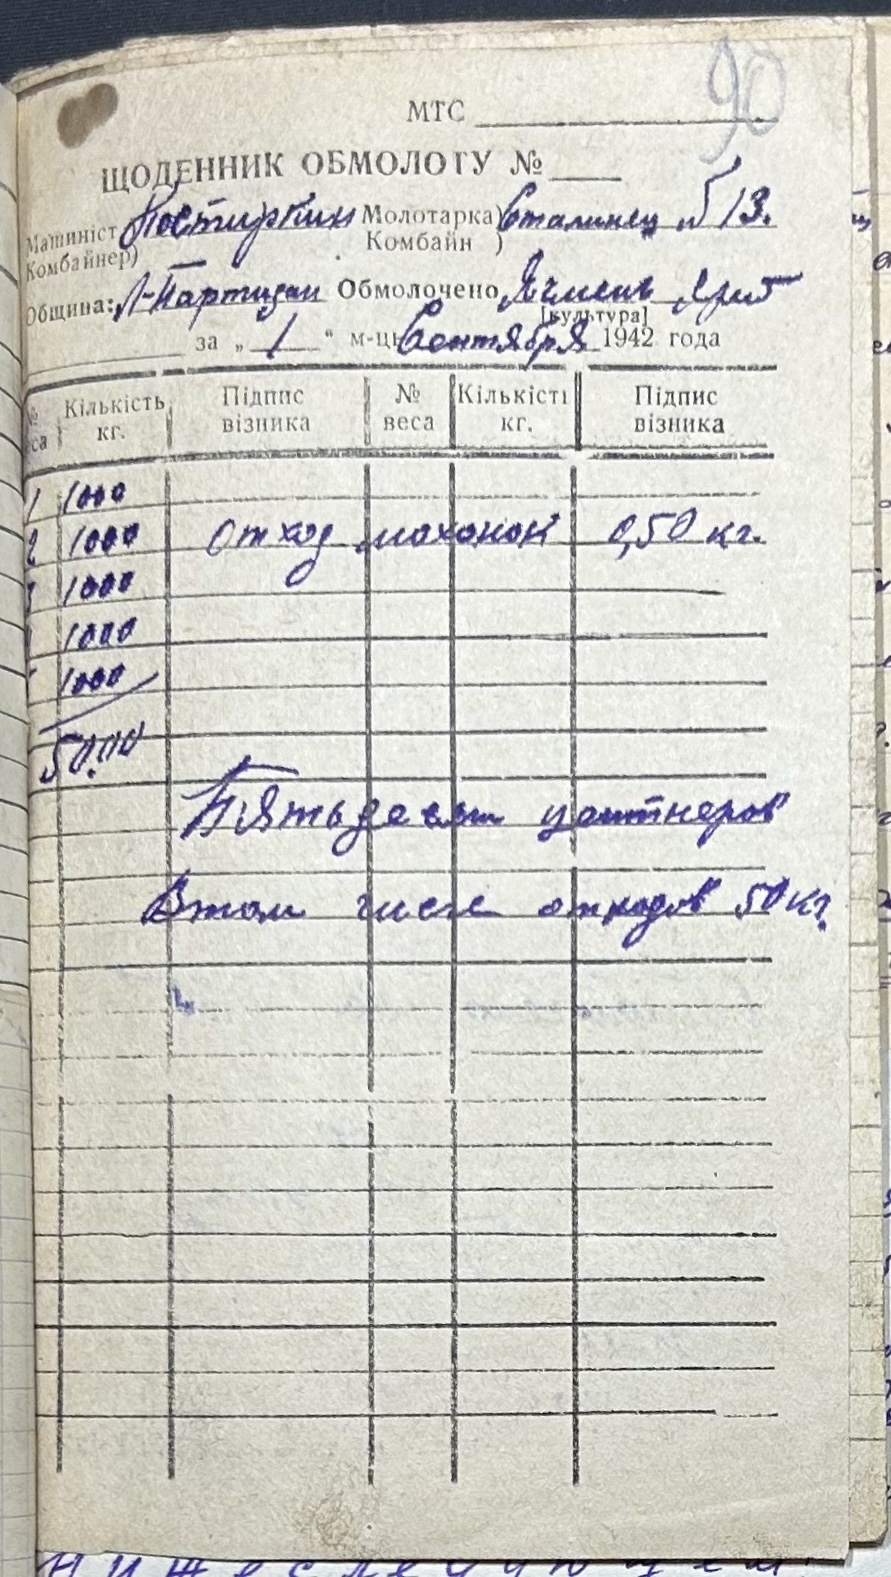 90
МТС
ЩОДЕННИК ОБМОЛОТУ №
Машиніст Постиркин Молотарка) Сталинец № 13.
Комбайнер) Комбайн )
Община: Л-Партизан Обмолочено Ячмень
[культура]
за „ 1 “ м-ць Сентября 1942 года
№ веса Кількість кг. Підпис візника № веса Кількісті кг. Підпис візника
1 1000
2 1000 Отход мохонот 0,50 кг.
1000
1000
1000
50.00
Пятьдесят центнеров
В том числе отходов 50 кг.